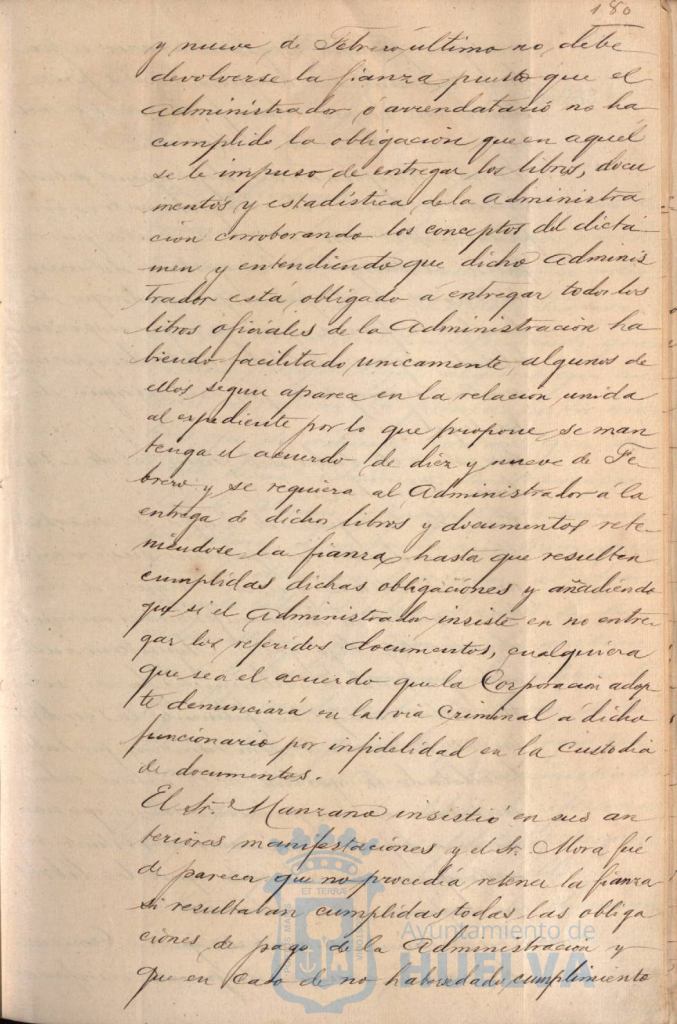 180
y nueve de Febrero último no debe
devolverse la fianza puesto que el
Administrador ó arrendatario no ha
cumplido la obligación que en aquel
se le impuso de entregar los libros, docu
mentos y estadística de la Administra
ción corroborando los conceptos del dictá
men y entendiendo que dicho Adminis
trador está obligado á entregar todos los
libros oficiales de la Administración ha
biendo facilitado unicamente algunos de
ellos segun aparece en la relacion unida
al expediente por lo que propone se man
tenga el acuerdo de diez y nueve de Fe
brero y se requiera al Administrador á la
entrega de dichos libros y documentos rete-
niéndose la fianza hasta que resulten
cumplidas dichas obligaciones y añadiendo
que si el Administrador insiste en no entre
gar los referidos documentos, cualquiera
que sea el acuerdo que la Corporación adop-
te denunciará en la via Criminal á dicho
funcionario por infidelidad en la custodia
de documentos.
El Sr. Manzano insistió en sus an
teriores manifestaciones y el Sr. Mora fué
de parecer que no procedía retener la fianza
si resultaban cumplidas todas las obliga
ciones de pago de la Administracion y
que en caso de no haberse dado cumplimiento
Ayuntamiento de
HUELVA